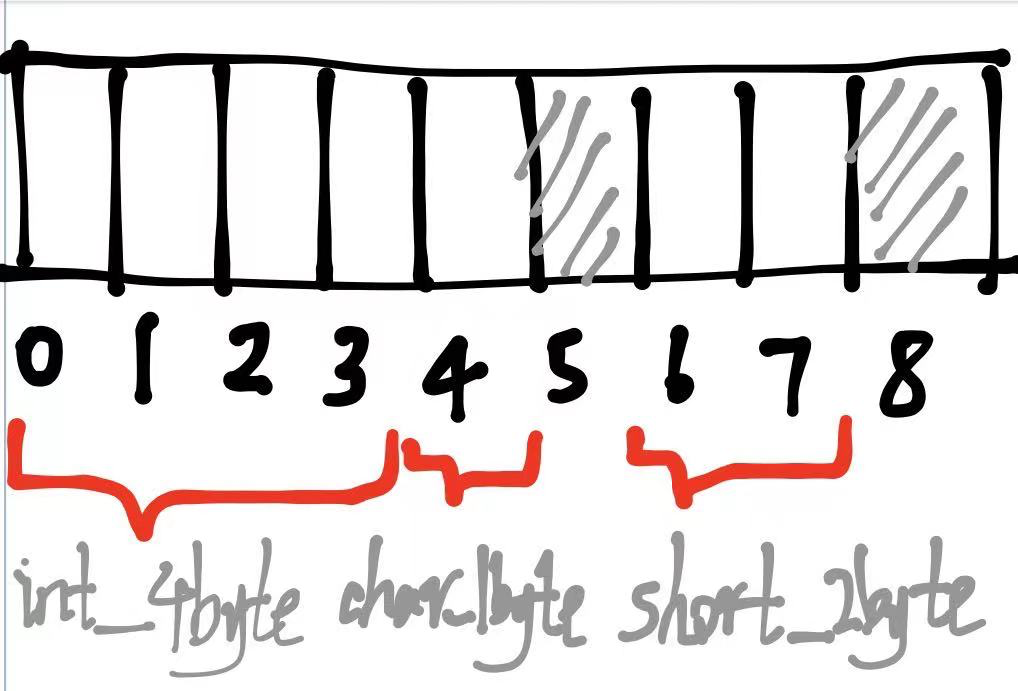 0 1 2 3 4 5 6 7 8
int_4byte char_1byte short_2byte